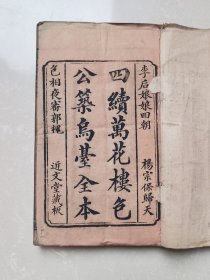 李后娘娘回朝　楊宗保歸天
四續萬花樓包
公築烏臺全本
包相夜審郭槐　近文堂藏板